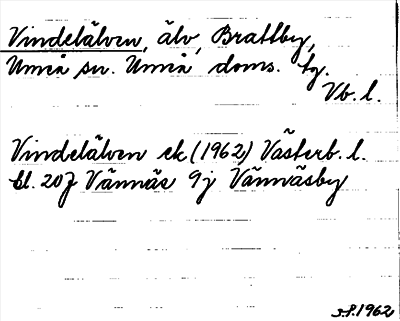 Vindelälven, älv, Brattby,
Umeå sn. Umeå doms. tg.
Vb. l.
Vindelälven ek (1962) Västerb. l.
bl. 20J Vännäs 9j Vännäsby
3.8.1962